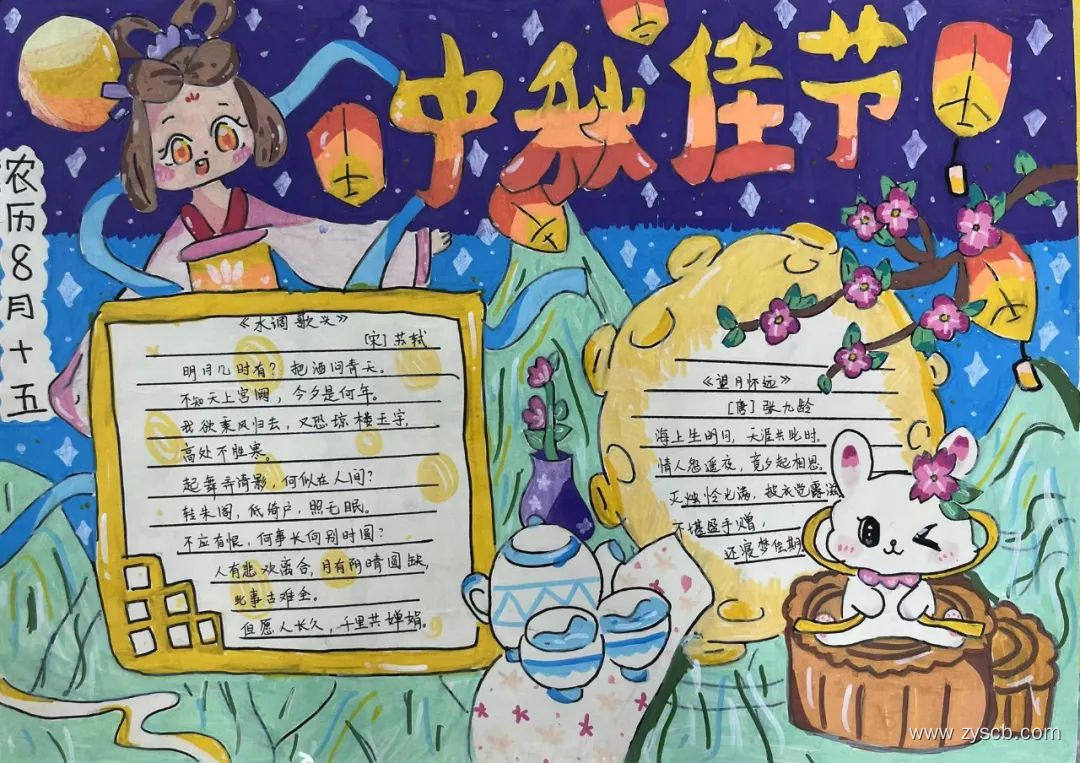 中秋佳节
农历8月十五
《水调歌头》
[宋] 苏轼
明月几时有？把酒问青天。
不知天上宫阙，今夕是何年。
我欲乘风归去，又恐琼楼玉宇，
高处不胜寒。
起舞弄清影，何似在人间？
转朱阁，低绮户，照无眠。
不应有恨，何事长向别时圆？
人有悲欢离合，月有阴晴圆缺，
此事古难全。
但愿人长久，千里共婵娟。
《望月怀远》
[唐] 张九龄
海上生明月，天涯共此时。
情人怨遥夜，竟夕起相思。
灭烛怜光满，披衣觉露滋
不堪盈手赠，
还寝梦佳期
www.zyscb.com